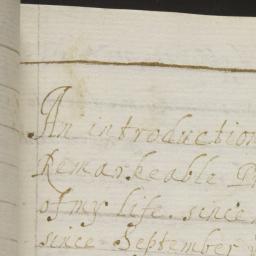 An introduction
Remarkeable
of my life. since
since September